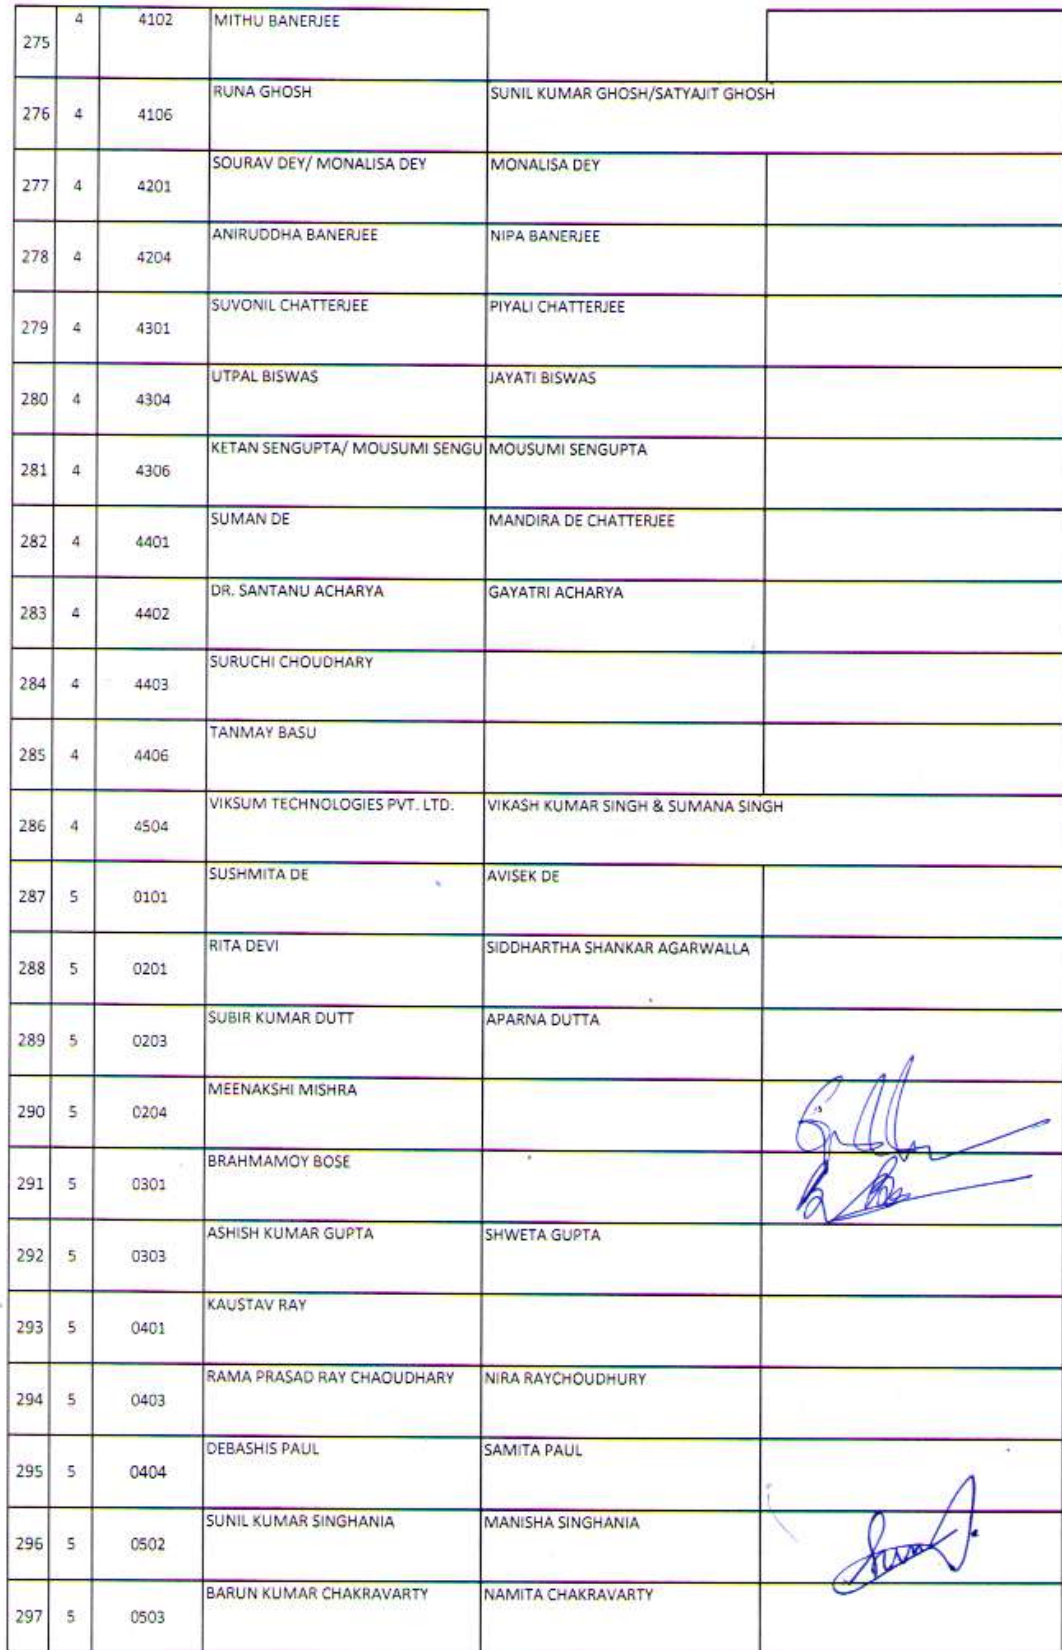 275 4 4102 MITHU BANERJEE
276 4 4106 RUNA GHOSH SUNIL KUMAR GHOSH/SATYAJIT GHOSH
277 4 4201 SOURAV DEY/ MONALISA DEY MONALISA DEY
278 4 4204 ANIRUDDHA BANERJEE NIPA BANERJEE
279 4 4301 SUVONIL CHATTERJEE PIYALI CHATTERJEE
280 4 4304 UTPAL BISWAS JAYATI BISWAS
281 4 4306 KETAN SENGUPTA/ MOUSUMI SENGU MOUSUMI SENGUPTA
282 4 4401 SUMAN DE MANDIRA DE CHATTERJEE
283 4 4402 DR. SANTANU ACHARYA GAYATRI ACHARYA
284 4 4403 SURUCHI CHOUDHARY
285 4 4406 TANMAY BASU
286 4 4504 VIKSUM TECHNOLOGIES PVT. LTD. VIKASH KUMAR SINGH & SUMANA SINGH
287 5 0101 SUSHMITA DE AVISEK DE
288 5 0201 RITA DEVI SIDDHARTHA SHANKAR AGARWALLA
289 5 0203 SUBIR KUMAR DUTT APARNA DUTTA
290 5 0204 MEENAKSHI MISHRA
291 5 0301 BRAHMAMOY BOSE
292 5 0303 ASHISH KUMAR GUPTA SHWETA GUPTA
293 5 0401 KAUSTAV RAY
294 5 0403 RAMA PRASAD RAY CHAOUDHARY NIRA RAYCHOUDHURY
295 5 0404 DEBASHIS PAUL SAMITA PAUL
296 5 0502 SUNIL KUMAR SINGHANIA MANISHA SINGHANIA
297 5 0503 BARUN KUMAR CHAKRAVARTY NAMITA CHAKRAVARTY